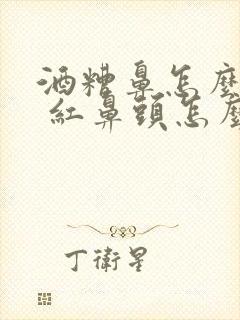 酒糟鼻怎麼
紅鼻頭怎麼
丁衛星